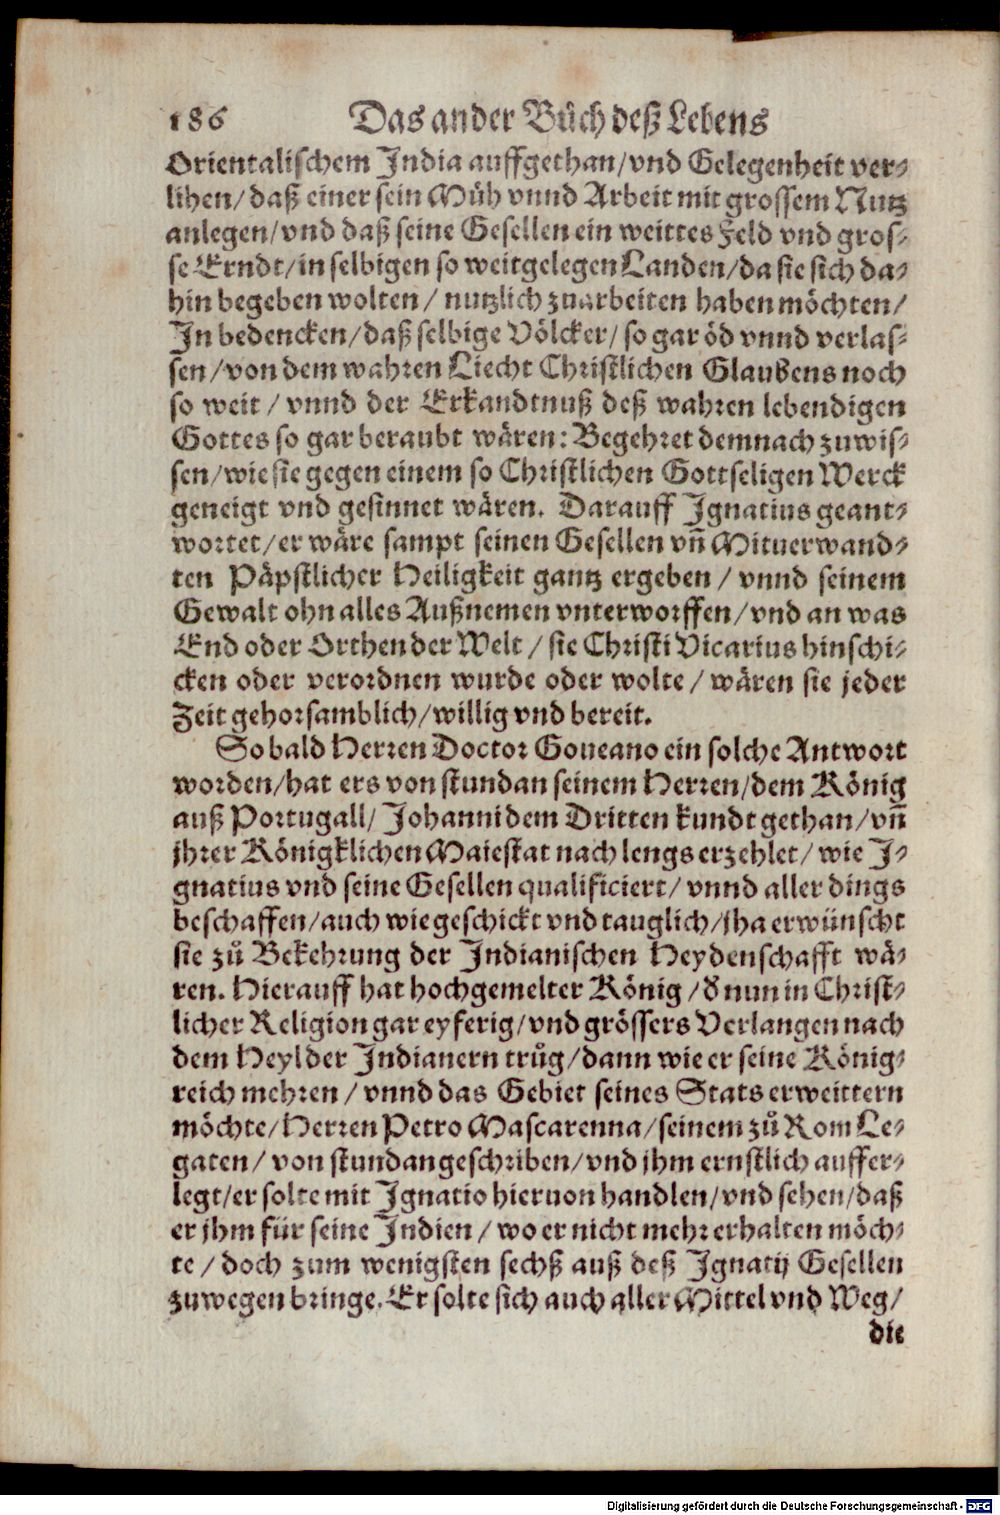 186 Das ander Bůch deß Lebens
Orientalischem India auffgethan/vnd Gelegenheit ver-
lihen/daß einer sein Müh vnnd Arbeit mit grossem Nutz
anlegen/vnd daß seine Gesellen ein weittes Feld vnd gros-
se Erndt/in selbigen so weitgelegen Landen/da sie sich da-
hin begeben wolten/ nutzlich zuarbeiten haben möchten/
In bedencken/daß selbige Völcker/so gar öd vnnd verlas-
sen/von dem wahren Liecht Christlichen Glaubens noch
so weit/ vnnd der Erkandtnuß deß wahren lebendigen
Gottes so gar beraubt wären: Begehret demnach zuwis-
sen/wie sie gegen einem so Christlichen Gottseligen Werck
geneigt vnd gesinnet wären. Darauff Ignatius geant-
wortet/er wäre sampt seinen Gesellen vñ Mituerwand-
ten Päpstlicher Heiligkeit gantz ergeben/ vnnd seinem
Gewalt ohn alles Außnemen vnterworffen/vnd an was
End oder Orthen der Welt/ sie Christi Vicarius hinschi-
cken oder verordnen wurde oder wolte/ wären sie jeder
Zeit gehorsamblich/willig vnd bereit.
So bald Herren Doctor Goueano ein solche Antwort
worden/hat ers von stundan seinem Herren/dem König
auß Portugall/ Johanni dem Dritten kundt gethan/vñ
jhrer Königklichen Maiestat nach lengs erzehlet/ wie I-
gnatius vnd seine Gesellen qualificiert/ vnnd aller dings
beschaffen/auch wie geschickt vnd tauglich/jha erwünscht
sie zů Bekehrung der Indianischen Heydenschafft wä-
ren. Hierauff hat hochgemelter König/ď nun in Christ-
licher Religion gar eyferig/vnd grössers Verlangen nach
dem Heyl der Indianern trůg/dann wie er seine König-
reich mehren/ vnnd das Gebiet seines Stats erweittern
möchte/Herren Petro Mascarenna/seinem zů Rom Le-
gaten/ von stundan geschriben/vnd jhm ernstlich auffer-
legt/er solte mit Ignatio hieruon handlen/vnd sehen/daß
er jhm für seine Indien/ wo er nicht mehr erhalten möch-
te/ doch zum wenigsten sechß auß deß Ignatij Gesellen
zuwegen bringe. Er solte sich auch aller Mittel vnd Weg/
die
Digitalisierung gefördert durch die Deutsche Forschungsgemeinschaft - DFG